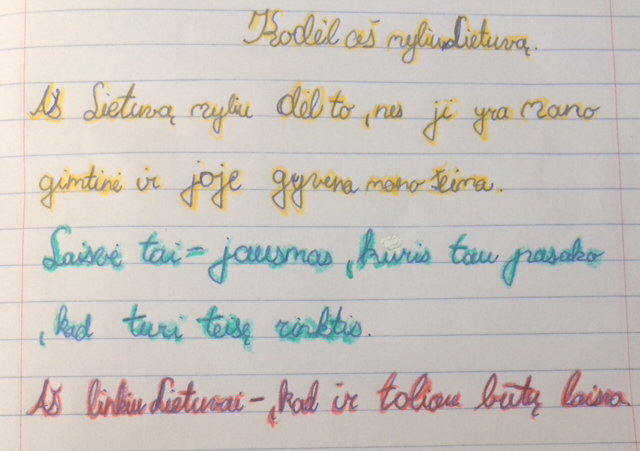 Kodėl aš myliu Lietuvą.
Aš Lietuvą myliu dėl to, nes ji yra mano
gimtinė ir joje gyvena mano šeima.
Laisvė tai = jausmas, kuris tau pasako
, kad turi teisę rinktis.
Aš linkiu Lietuvai -, kad ir toliau būtų laisva.